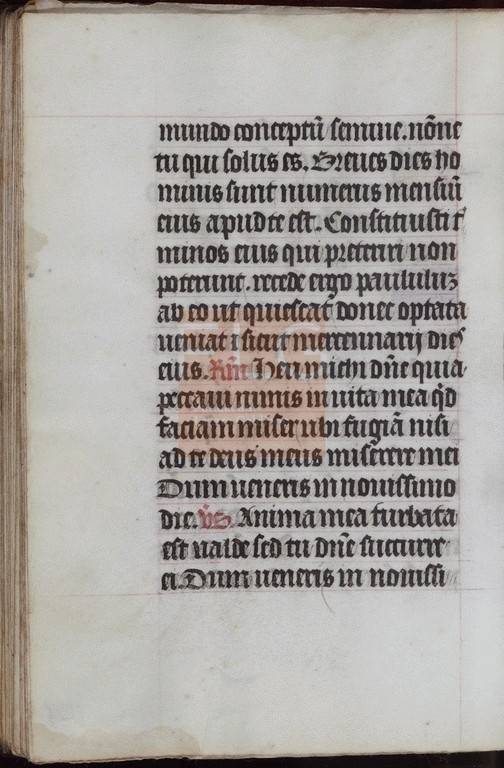 mundo conceptũ semine. nõne
tu qui solus es. Breues dies ho
minis sunt numerus mensiũ
eius apud te est. Constituisti t̃
minos eius qui preteriri non
poterunt. recede ergo paululuz
ab eo ut quiescat donec optata
ueniat ⁊ sicut mercennarij dies
eius. Rm̃ Heu michi dñe quia
peccaui nimis in uita mea q̃d
faciam miser ubi fugiã nisi
ad te deus meus miserere mei
Dum ueneris in nouissimo
die. v̄s. Anima mea turbata
est ualde sed tu dñe succurre
ei. Dum ueneris in nouissi